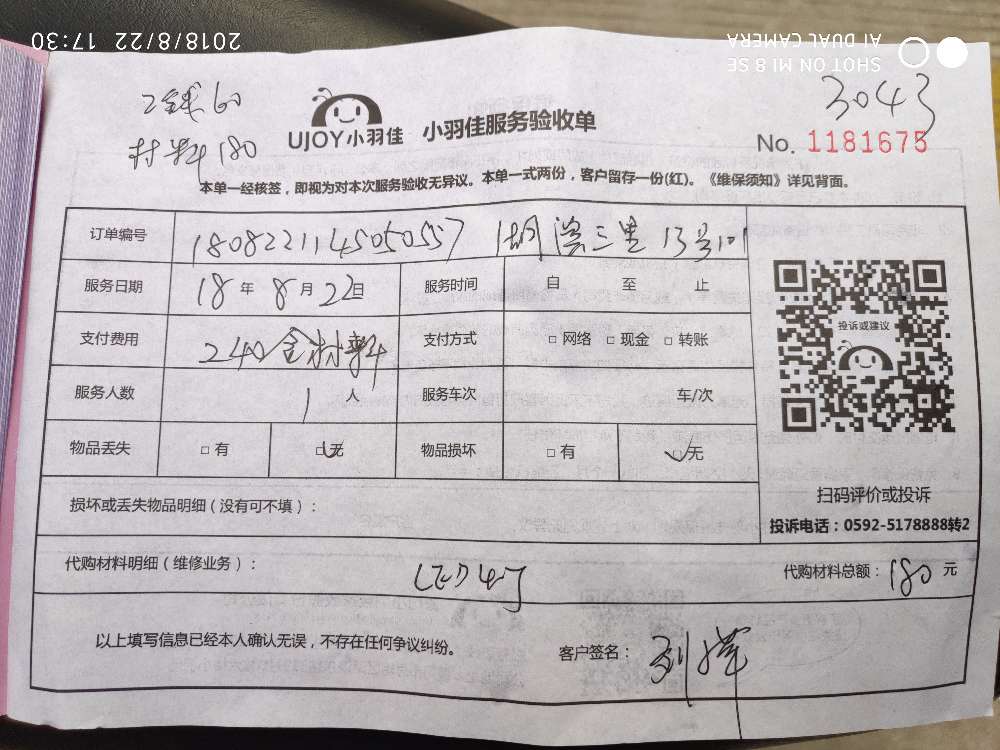 2018/8/22 17:30
SHOT ON MI 8 SE
AI DUAL CAMERA
工钱60
材料180
UJOY小羽佳 小羽佳服务验收单
3043
No. 1181675
本单一经核签，即视为对本次服务验收无异议。本单一式两份，客户留存一份(红)。《维保须知》详见背面。
订单编号 1808221145050557 湖滨三里13号101
服务日期 18年8月22日 服务时间 自 至 止
支付费用 240含材料 支付方式 □网络 □现金 □转账
服务人数 1人 服务车次 车/次
物品丢失 □有 □无 物品损坏 □有 □无
投诉或建议
扫码评价或投诉
投诉电话：0592-5178888转2
损坏或丢失物品明细（没有可不填）：
代购材料明细（维修业务）： LED灯 代购材料总额：180元
以上填写信息已经本人确认无误，不存在任何争议纠纷。 客户签名：